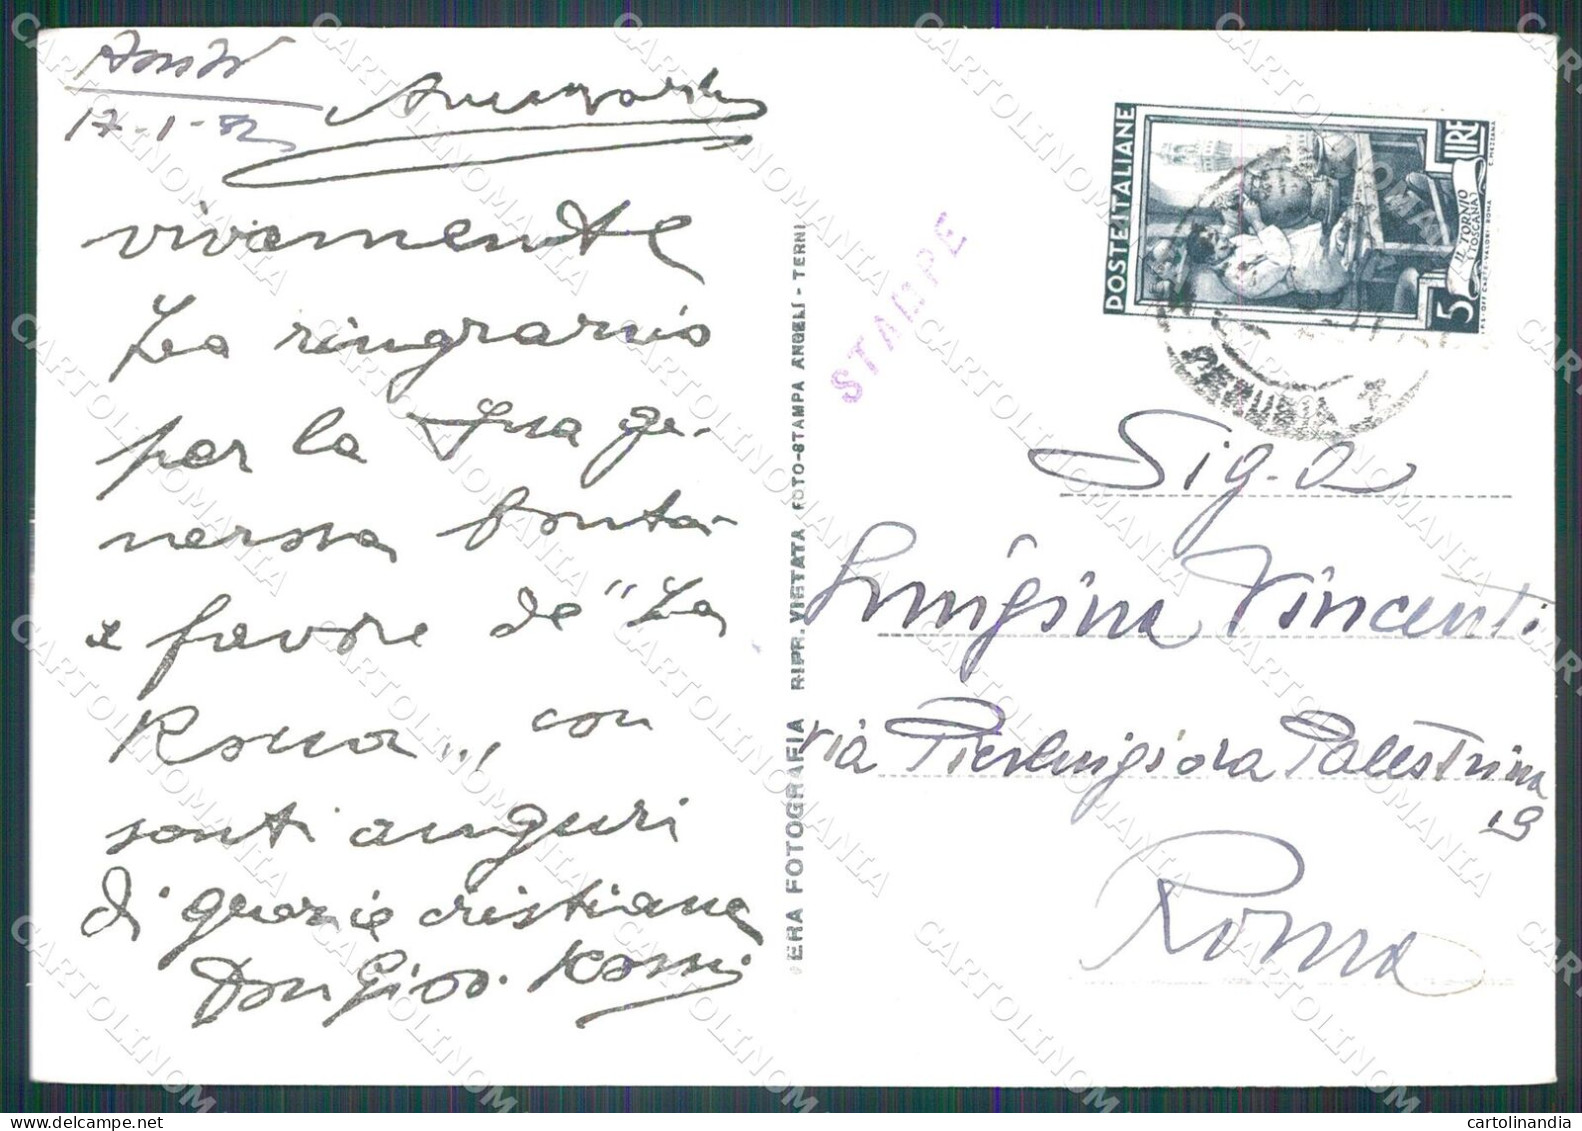 17-1-52
vivamente
La ringrazio
per la Sua ge-
nerosa bontà
a favore de "La
Rocca..., con
santi auguri
di grazie cristiane
Don Giov. Rossi
STAMPE
POSTE ITALIANE
LIRE
5
IL TORNIO
TOSCANA
PERUGIA
VERA FOTOGRAFIA RIPR. VIETATA FOTO-STAMPA ANGELI - TERNI
Sig.a
Luigina Vincenti
via Pierluigi da Palestrina
19
Roma
CARTOLINOMANIA
cartolinandia